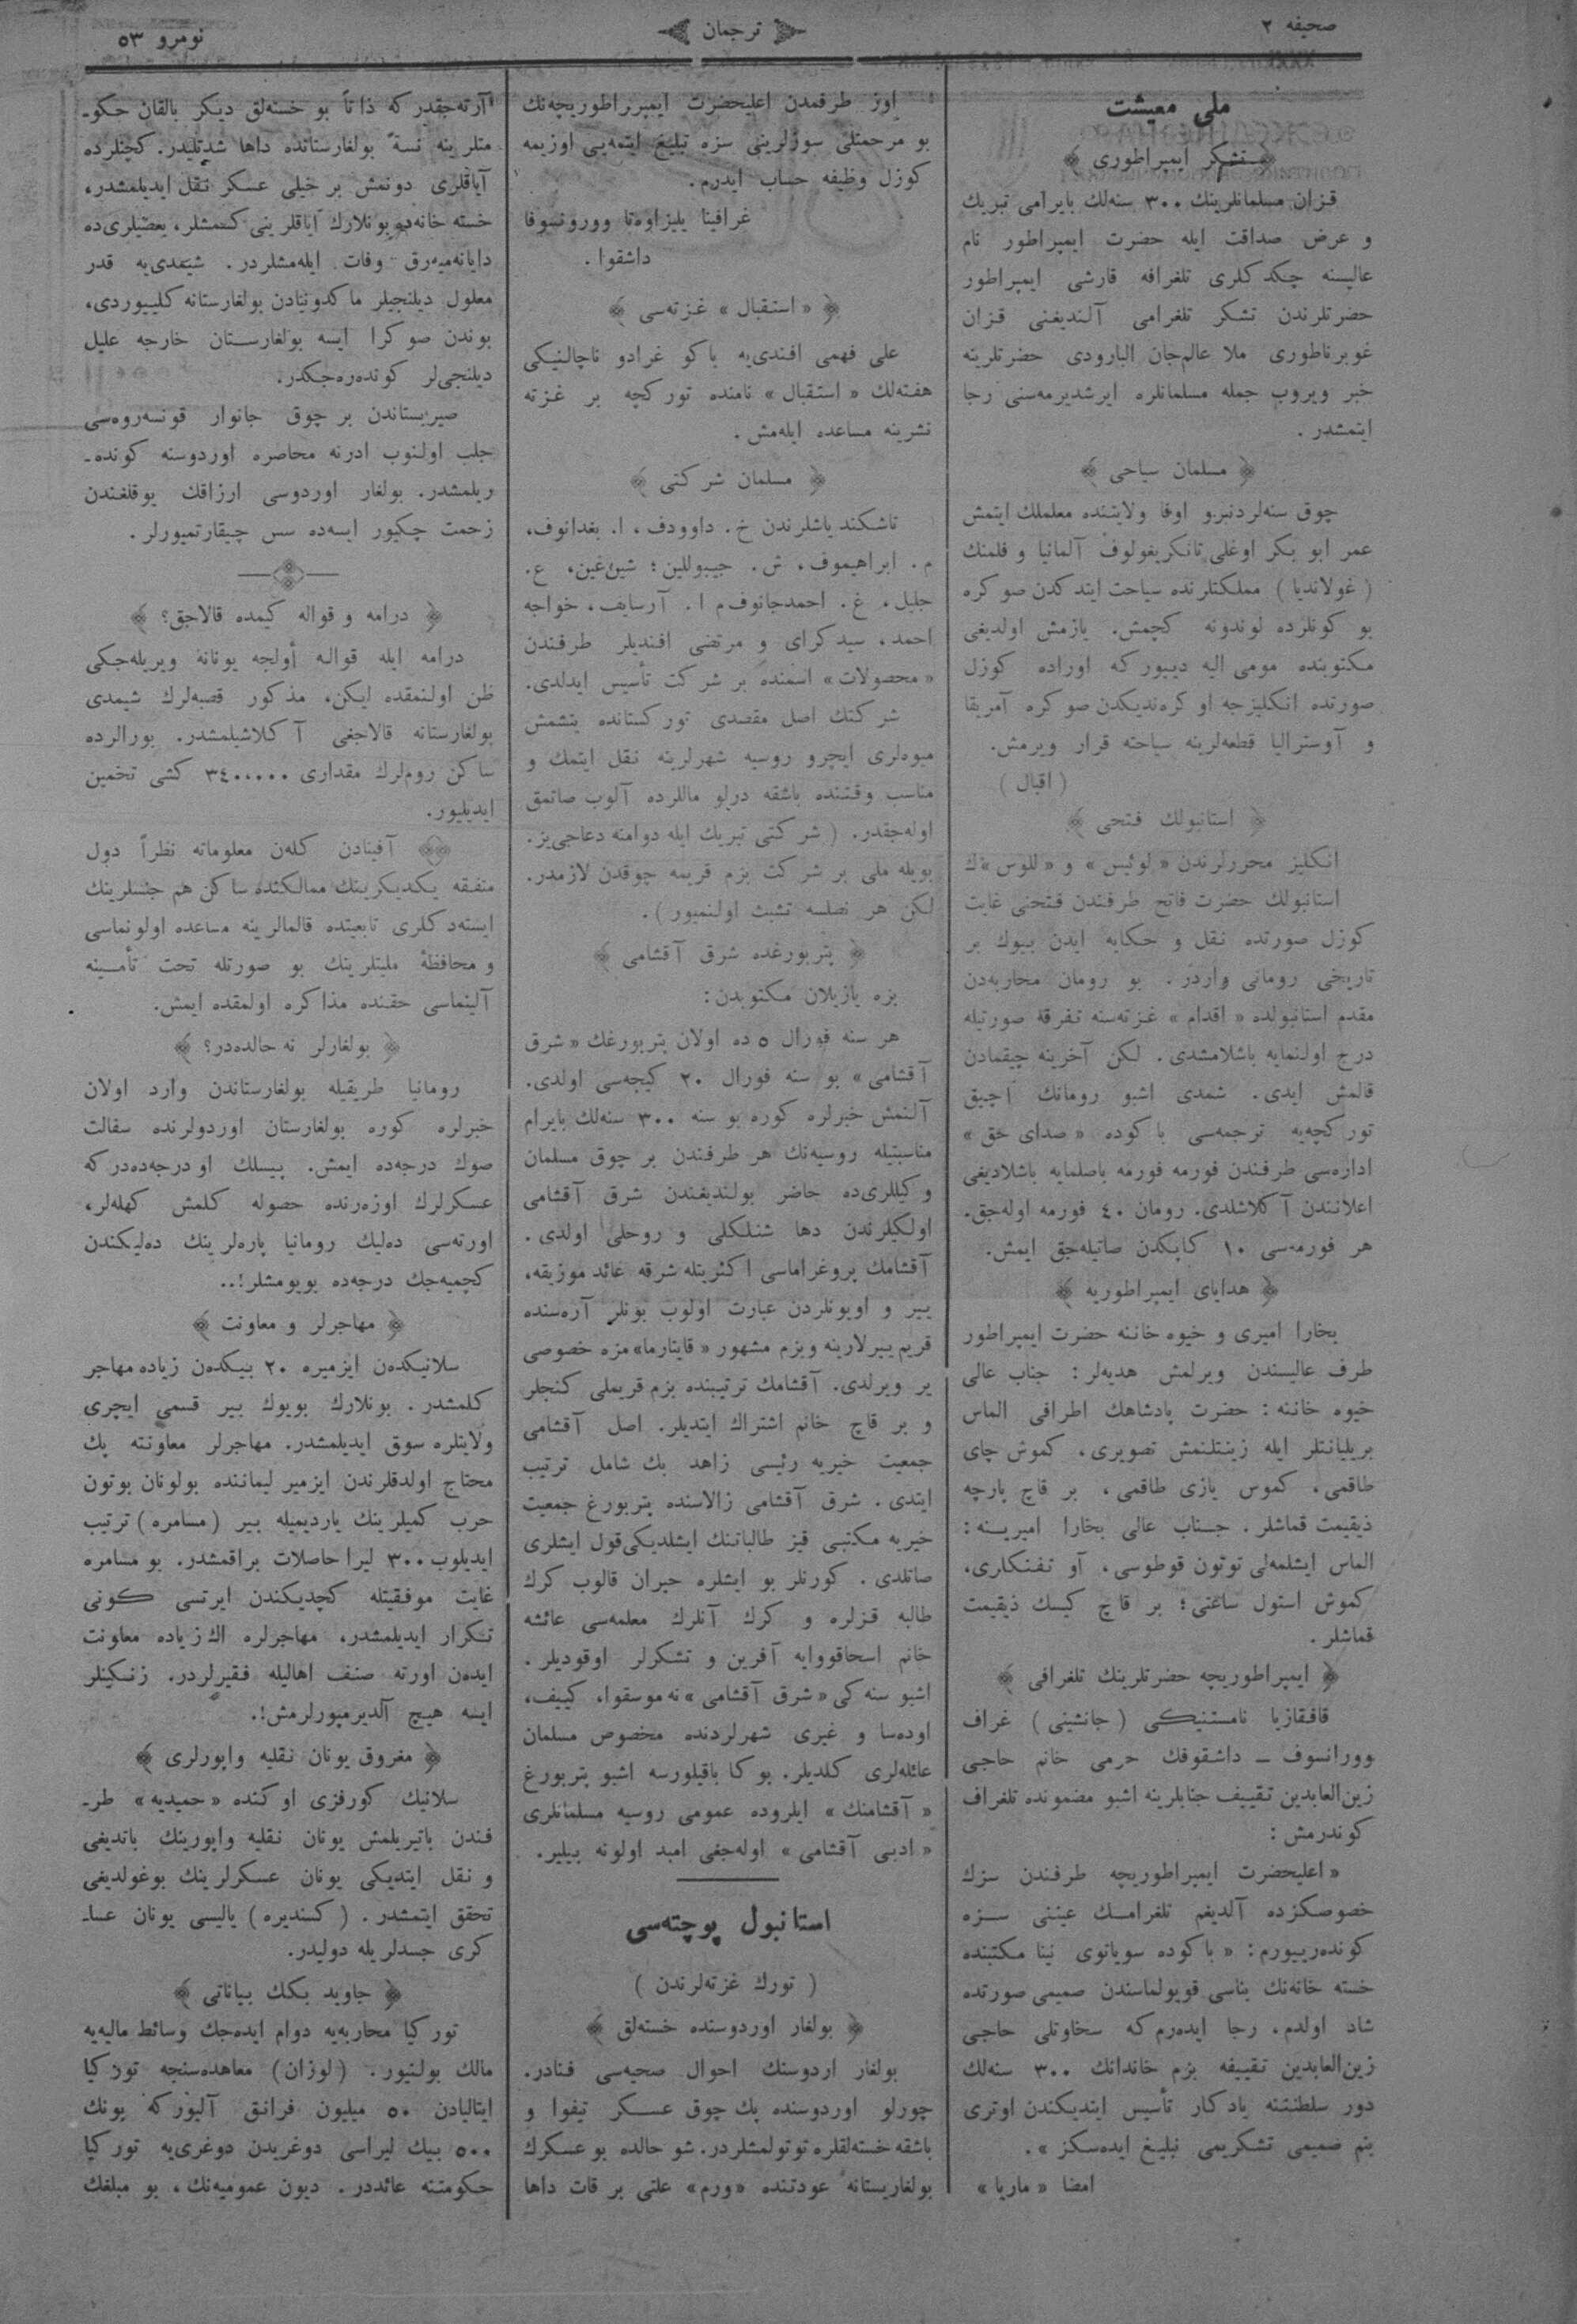 صحيفه ٢
ترجمان
نومرو ٥٣
ملى معيشت
﴿ تشكر ايمپراطورى ﴾
قزان مسلمانلرينك ٣٠٠ سنه‌لك بايرامى تبريك
و عرض صداقت ايله حضرت ايمپراطور نام
عاليسنه چكدكلرى تلغرافه قارشى ايمپراطور
حضرتلرندن تشكر تلغرامى آلنديغنى قزان
غوبرناطورى ملا عالم‌جان البارودى حضرتلرينه
خبر ويروب جمله مسلمانلره ايرشديرمه‌سنى رجا
ايتمشدر.
﴿ مسلمان سياحى ﴾
چوق سنه‌لردنبرو اوفا ولايتنده معلملك ايتمش
عمر ابو بكر اوغلى تانكريغولوف آلمانيا و فلمنك
( غولانديا ) مملكتلرنده سياحت ايتدكدن صوكره
بو كونلرده لوندونه كچمش. يازمش اولديغى
مكتوبنده مومى اليه دييوركه اوراده كوزل
صورتده انكليزجه اوكره‌نديكدن صوكره آمريقا
و آوستراليا قطعه‌لرينه سياحته قرار ويرمش.
( اقبال )
﴿ استانبولك فتحى ﴾
انكليز محررلرندن «لوئيس» و «للوس»ك
استانبولك حضرت فاتح طرفندن فتحنى غايت
كوزل صورتده نقل و حكايه ايدن بيوك بر
تاريخى رومانى واردر. بو رومان محاربه‌دن
مقدم استانبولده «اقدام» غزته‌سنه تفرقه صورتيله
درج اولنمايه باشلامشدى. لكن آخرينه چيقمادن
قالمش ايدى. شمدى اشبو رومانك آچيق
توركچه‌يه ترجمه‌سى باكوده «صداى حق»
اداره‌سى طرفندن فورمه فورمه باصلمايه باشلاديغى
اعلانندن آكلاشلدى. رومان ٤٠ فورمه اوله‌جق.
هر فورمه‌سى ١٠ كاپكدن صاتيله‌جق ايمش.
﴿ هداياى ايمپراطوريه ﴾
بخارا اميرى و خيوه خاننه حضرت ايمپراطور
طرف عاليسندن ويرلمش هديه‌لر: جناب عالى
خيوه خاننه: حضرت پادشاهك اطرافى الماس
بريليانتلر ايله زينتلنمش تصويرى، كموش چاى
طاقمى، كموس يازى طاقمى، بر قاچ پارچه
ذيقيمت قماشلر. جناب عالى بخارا اميرينه:
الماس ايشلمه‌لى توتون قوطوسى، آو تفنكارى،
كموش استول ساغتى؛ بر قاچ كيسك ذيقيمت
قماشلر.
﴿ ايمپراطوريچه حضرتلرينك تلغرافى ﴾
قافقازيا نامستنيكى ( جانشينى ) غراف
وورانسوف ــ داشقوفك حرمى خانم حاجى
زين‌العابدين تقييف جنابلرينه اشبو مضمونده تلغراف
كوندرمش:
«اعليحضرت ايمپراطوريچه طرفندن سزك
خصوصكزده آلديغم تلغرامك عيننى سزه
كونده‌رييورم: «باكوده سوياتوى نينا مكتبنده
خسته خانه‌نك بناسى قويولماسندن صميمى صورتده
شاد اولدم، رجا ايده‌رم كه سخاوتلى حاجى
زين‌العابدين تقييفه بزم خاندانك ٣٠٠ سنه‌لك
دور سلطنتنه يادكار تأسيس ايتديكندن اوترى
بنم صميمى تشكريمى تبليغ ايده‌سكز».
امضا «ماريا»
اوز طرفمدن اعليحضرت ايمپرراطوريچه‌نك
بو مرحمتلى سوزلرينى سزه تبليغ ايتمه‌يى اوزيمه
كوزل وظيفه حساب ايدرم.
غرافينا يليزاوه‌تا وورونسوفا
داشقوا.
﴿ «استقبال» غزته‌سى ﴾
على فهمى افندى‌يه باكو غرادو ناچالنيكى
هفته‌لك «استقبال» نامنده توركچه بر غزته
نشرينه مساعده ايله‌مش.
﴿ مسلمان شركتى ﴾
تاشكند ياشلرندن خ. داوودف، ا. بغدانوف،
م. ابراهيموف، ش. جيبوللين؛ شين‌غين، ع.
جليل، غ. احمدجانوف م ا. آرسايف، خواجه
احمد، سيدكراى و مرتضى افنديلر طرفندن
«محصولات» اسمنده بر شركت تأسيس ايدلدى.
شركتك اصل مقصدى توركستانده يتشمش
ميوه‌لرى ايچرو روسيه شهرلرينه نقل ايتمك و
مناسب وقتنده باشقه درلو ماللرده آلوب صاتمق
اوله‌جقدر. ( شركتى تبريك ايله دوامنه دعاجى‌يز.
بويله ملى بر شركت بزم قريمه چوقدن لازمدر.
لكن هر نصلسه تشبث اولنميور ).
﴿ پتربورغده شرق آقشامى ﴾
بزه يازيلان مكتوبدن:
هر سنه فورال ٥ ده اولان پتربورغك «شرق
آقشامى» بو سنه فورال ٢٠ كيجه‌سى اولدى.
آلنمش خبرلره كوره بو سنه ٣٠٠ سنه‌لك بايرام
مناسبتيله روسيه‌نك هر طرفندن بر چوق مسلمان
وكيللرى‌ده حاضر بولنديغندن شرق آقشامى
اولكيلرندن دها شنلكلى و روحلى اولدى.
آقشامك پروغراماسى اكثريتله شرقه عائد موزيقه،
يير و اويونلردن عبارت اولوب بونلر آره‌سنده
قريم ييرلارينه وبزم مشهور «قايتارما»مزه خصوصى
ير ويرلدى. آقشامك ترتيبنده بزم قريملى كنجلر
و بر قاچ خانم اشتراك ايتديلر. اصل آقشامى
جمعيت خيريه رئيسى زاهد بك شامل ترتيب
ايتدى. شرق آقشامى زالاسنده پتربورغ جمعيت
خيريه مكتبى قيز طالباتنك ايشلديكى قول ايشلرى
صاتلدى. كورنلر بو ايشلره حيران قالوب كرك
طالبه قزلره و كرك آنلرك معلمه‌سى عائشه
خانم اسحاقووايه آفرين و تشكرلر اوقوديلر.
اشبو سنه كى «شرق آقشامى»نه موسقوا، كييف،
اوده‌سا و غيرى شهرلردنده مخصوص مسلمان
عائله‌لرى كلديلر. بوكا باقيلورسه اشبو پتربورغ
«آقشامنك» ايلروده عمومى روسيه مسلمانلرى
«ادبى آقشامى» اوله‌جغى اميد اولونه بيلير.
استانبول پوچته‌سى
( تورك غزته‌لرندن )
﴿ بولغار اوردوسنده خسته‌لق ﴾
بولغار اردوسنك احوال صحيه‌سى فنادر.
چورلو اوردوسنده پك چوق عسكر تيفوا و
باشقه خسته‌لقلره توتولمشلردر. شو حالده بو عسكرك
بولغاريستانه عودتنده «ورم» علتى بر قات داها
آرته‌جقدركه ذاتاً بو خسته‌لق ديكر بالقان حكو-
متلرينه نسبةً بولغارستانده داها شدتليدر. كچنلرده
آياقلرى دونمش بر خيلى عسكر نقل ايديلمشدر،
خسته خانه‌ده بونلارك آياقلرينى كسمشلر، بعضيلرى‌ده
دايانه‌ميه‌رق وفات ايله‌مشلردر. شيمدى‌يه قدر
معلول ديلنجيلر ماكدونيادن بولغارستانه كلييوردى،
بوندن صوكرا ايسه بولغارستان خارجه عليل
ديلنجى‌لر كونده‌ره‌جكدر.
صربستاندن بر چوق جانوار قونسه‌روه‌سى
جلب اولنوب ادرنه محاصره اوردوسنه كونده-
ريلمشدر. بولغار اوردوسى ارزاقك يوقلغندن
زحمت چكيور ايسه‌ده سس چيقارتميورلر.
﴿ درامه و قواله كيمده قالاجق؟ ﴾
درامه ايله قواله أولجه يونانه ويريله‌جكى
ظن اولنمقده ايكن، مذكور قصبه‌لرك شيمدى
بولغارستانه قالاجغى آكلاشيلمشدر. بورالرده
ساكن روم‌لرك مقدارى ٣٤٠،٠٠٠ كشى تخمين
ايديليور.
آفينادن كلەن معلوماته نظراً دول
متفقه يكديكرينك ممالكنده ساكن هم جنسلرينك
ايسته‌دكلرى تابعيتده قالمالرينه مساعده اولونماسى
و محافظهٔ مليتلرينك بو صورتله تحت تأمينه
آلينماسى حقنده مذاكره اولمقده ايمش.
﴿ بولغارلر نه حالده‌در؟ ﴾
رومانيا طريقيله بولغارستاندن وارد اولان
خبرلره كوره بولغارستان اوردولرنده سفالت
صوك درجه‌ده ايمش. پيسلك او درجه‌ده‌دركه
عسكرلرك اوزه‌رنده حصوله كلمش كهله‌لر،
اورته‌سى ده‌ليك رومانيا پاره‌لرينك ده‌ليكندن
كچميه‌جك درجه‌ده بويومشلر!..
﴿ مهاجرلر و معاونت ﴾
سلانيكده‌ن ايزميره ٢٠ بيكده‌ن زياده مهاجر
كلمشدر. بونلارك بويوك بير قسمى ايچرى
ولايتلره سوق ايديلمشدر. مهاجرلر معاونته پك
محتاج اولدقلرندن ايزمير ليماننده بولونان بوتون
حرب كميلرينك يارديميله بير (مسامره) ترتيب
ايديلوب ٣٠٠ ليرا حاصلات براقمشدر. بو مسامره
غايت موفقيتله كچديكندن ايرتسى كونى
تكرار ايديلمشدر، مهاجرلره اك زياده معاونت
ايده‌ن اورته صنف اهاليله فقيرلردر. زنكينلر
ايسه هيچ آلديرميورلرمش!.
﴿ مغروق يونان نقليه واپورلرى ﴾
سلانيك كورفزى اوكنده «حميديه» طر-
فندن باتيريلمش يونان نقليه واپورينك باتديغى
و نقل ايتديكى يونان عسكرلرينك بوغولديغى
تحقق ايتمشدر. ( كسنديره ) ياليسى يونان عسا-
كرى جسدلريله دوليدر.
﴿ جاويد بكك بياناتى ﴾
توركيا محاربه‌يه دوام ايده‌جك وسائط ماليه‌يه
مالك بولنيور. ( لوزان ) معاهده‌سنجه توركيا
ايتاليادن ٥٠ ميليون فرانق آليوركه بونك
٥٠٠ بيك ليراسى دوغريدن دوغرى‌يه توركيا
حكومتنه عائددر. ديون عموميه‌نك، بو مبلغك